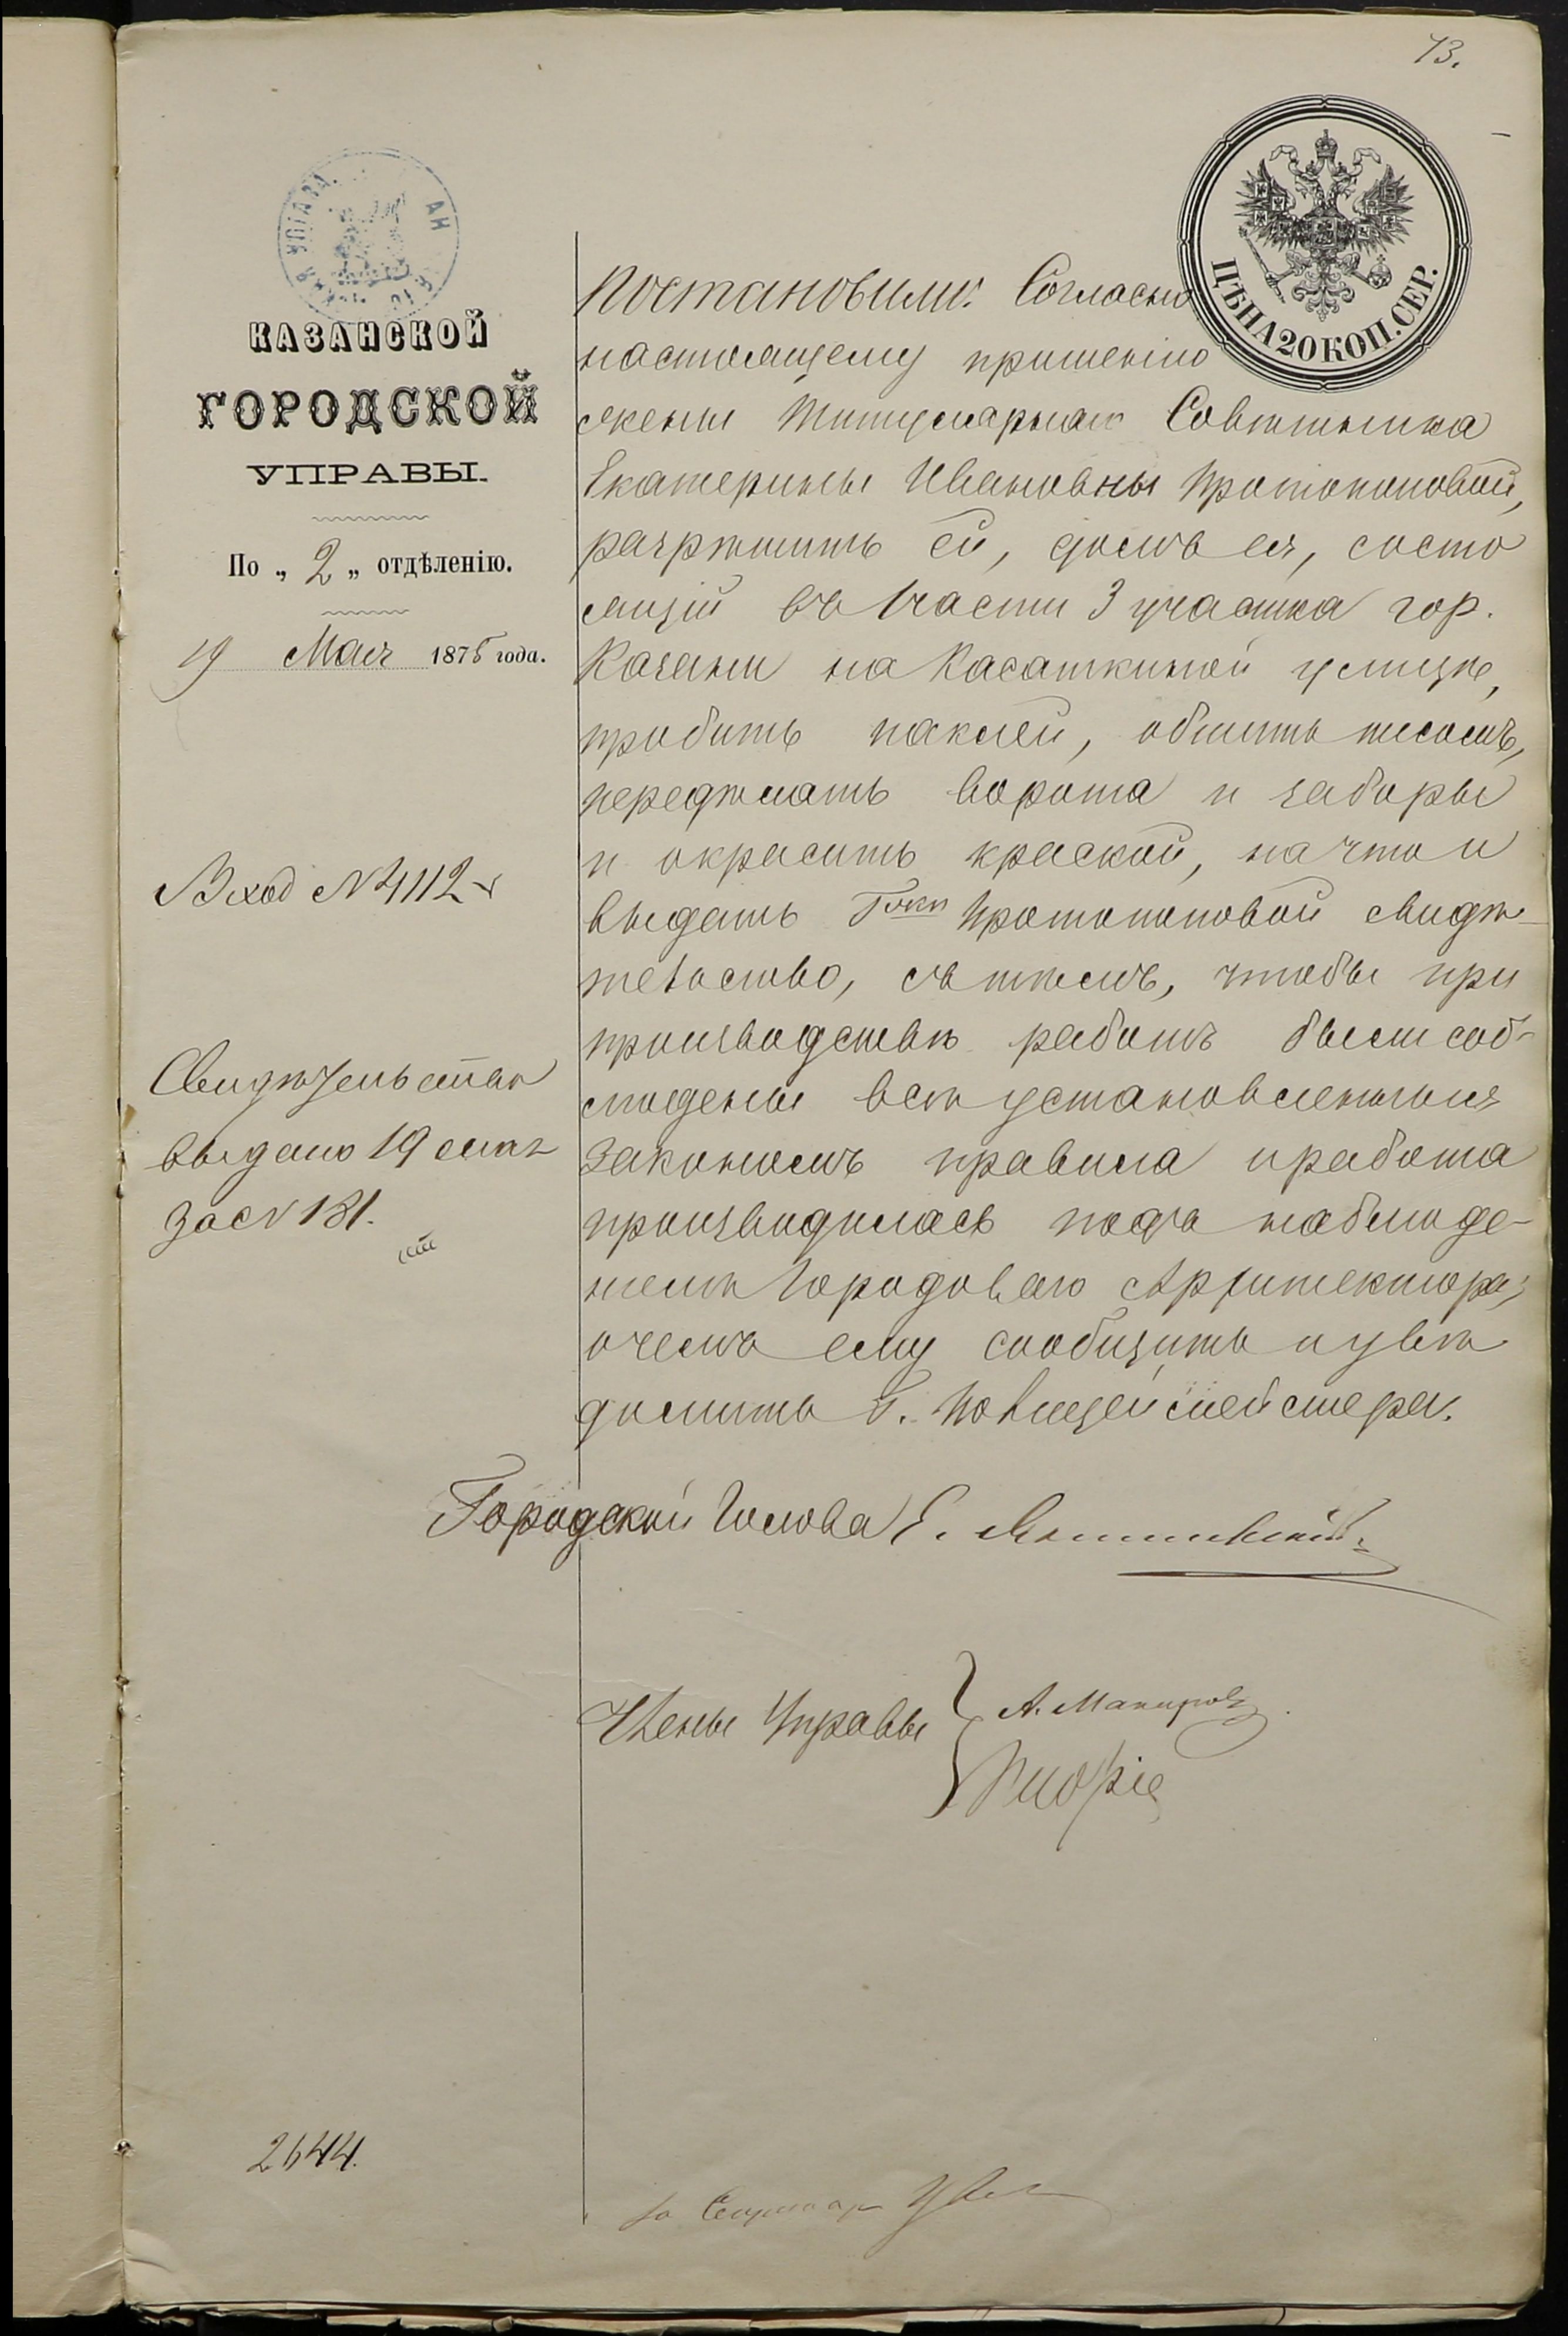 73.
ЦѢНА 20 КОП. СЕР.
КАЗАНСКОЙ
ГОРОДСКОЙ
УПРАВЫ.
По „ 2 „ отдѣленію.
19 Мая 1875 года.
Вход № 4112
Свидѣтельство
выдано 19 мая
за № 181.
Постановили: Согласно
настоящему прошенію
жены Титулярнаго Совѣтника
Екатерины Ивановны Протопоповой,
разрѣшить ей, домъ ея, состо
ящій въ части 3 участка гор.
Казани на Касаткиной улицѣ,
пробить паклей, обшить тесомъ,
передѣлать ворота и заборы
и окрасить краской, на что и
выдать Г-жѣ Протопоповой свидѣ-
тельство, съ тѣмъ, чтобы при
производствѣ работъ были соб-
людены всѣ установленныя
закономъ правила и работа
производилась подъ наблюде-
ніемъ Городоваго Архитектора,
о чемъ ему сообщить и увѣ
домить Г. Полицеймейстера.
Городской Голова Е.
Члены Управы
А.
2644.